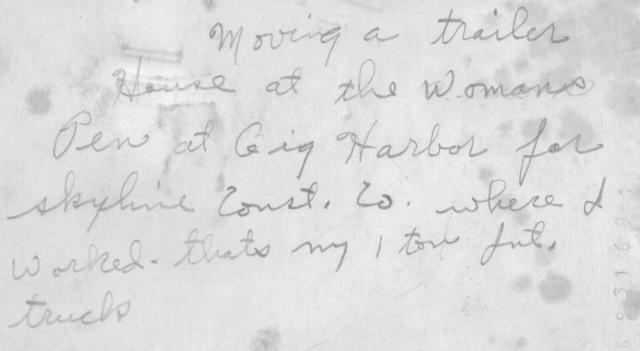 Moving a trailer
House at the Womans
Pen at Gig Harbor for
skyline Const. Co. where I
worked. thats my 1 ton Int.
truck